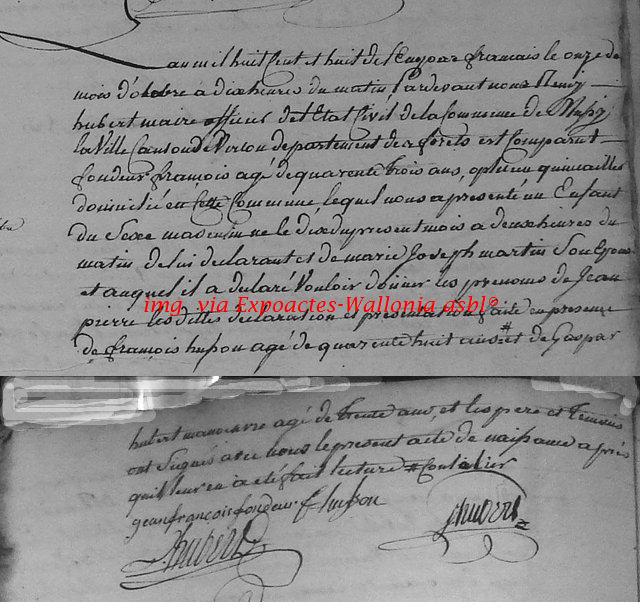 L'an mil huit cent et huit de l'Empire français le onze du
mois d'octobre à dix heures du matin Pardevant nous Henry
hubert maire officier de l'Etat Civil de la Commune de Mussy
la Ville Canton de Virton departement des forêts est Comparut
fondeur françois agé de quarente trois ans, quincailles
domicilié en Cette Commune lequel nous a presenté un Enfant
du Sexe masculin né le dix du present mois a deux heures du
matin de lui declarant et de marie Joseph martin Son Epouse
et auquel il a declaré Vouloir donner les prenoms de Jean
img. via Expoactes-Wallonia asbl©
pierre les dittes declaration et presentation faite en presence
de françois husson agé de quarente huit ans # et de Gaspar
hubert manoeuvre agé de trente ans et les pere et temoins
ont Signés avec nous le present acte de naissance après
qu'il leur en a été fait lecture #
jean françois fondeur f husson
J hubert